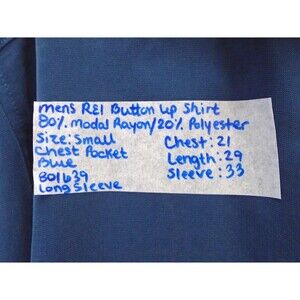 Mens REI Button Up Shirt
80% Modal Rayon/20% Polyester
Size: Small
Chest Pocket
Blue
801639
Long Sleeve
Chest: 21
Length: 29
Sleeve: 33